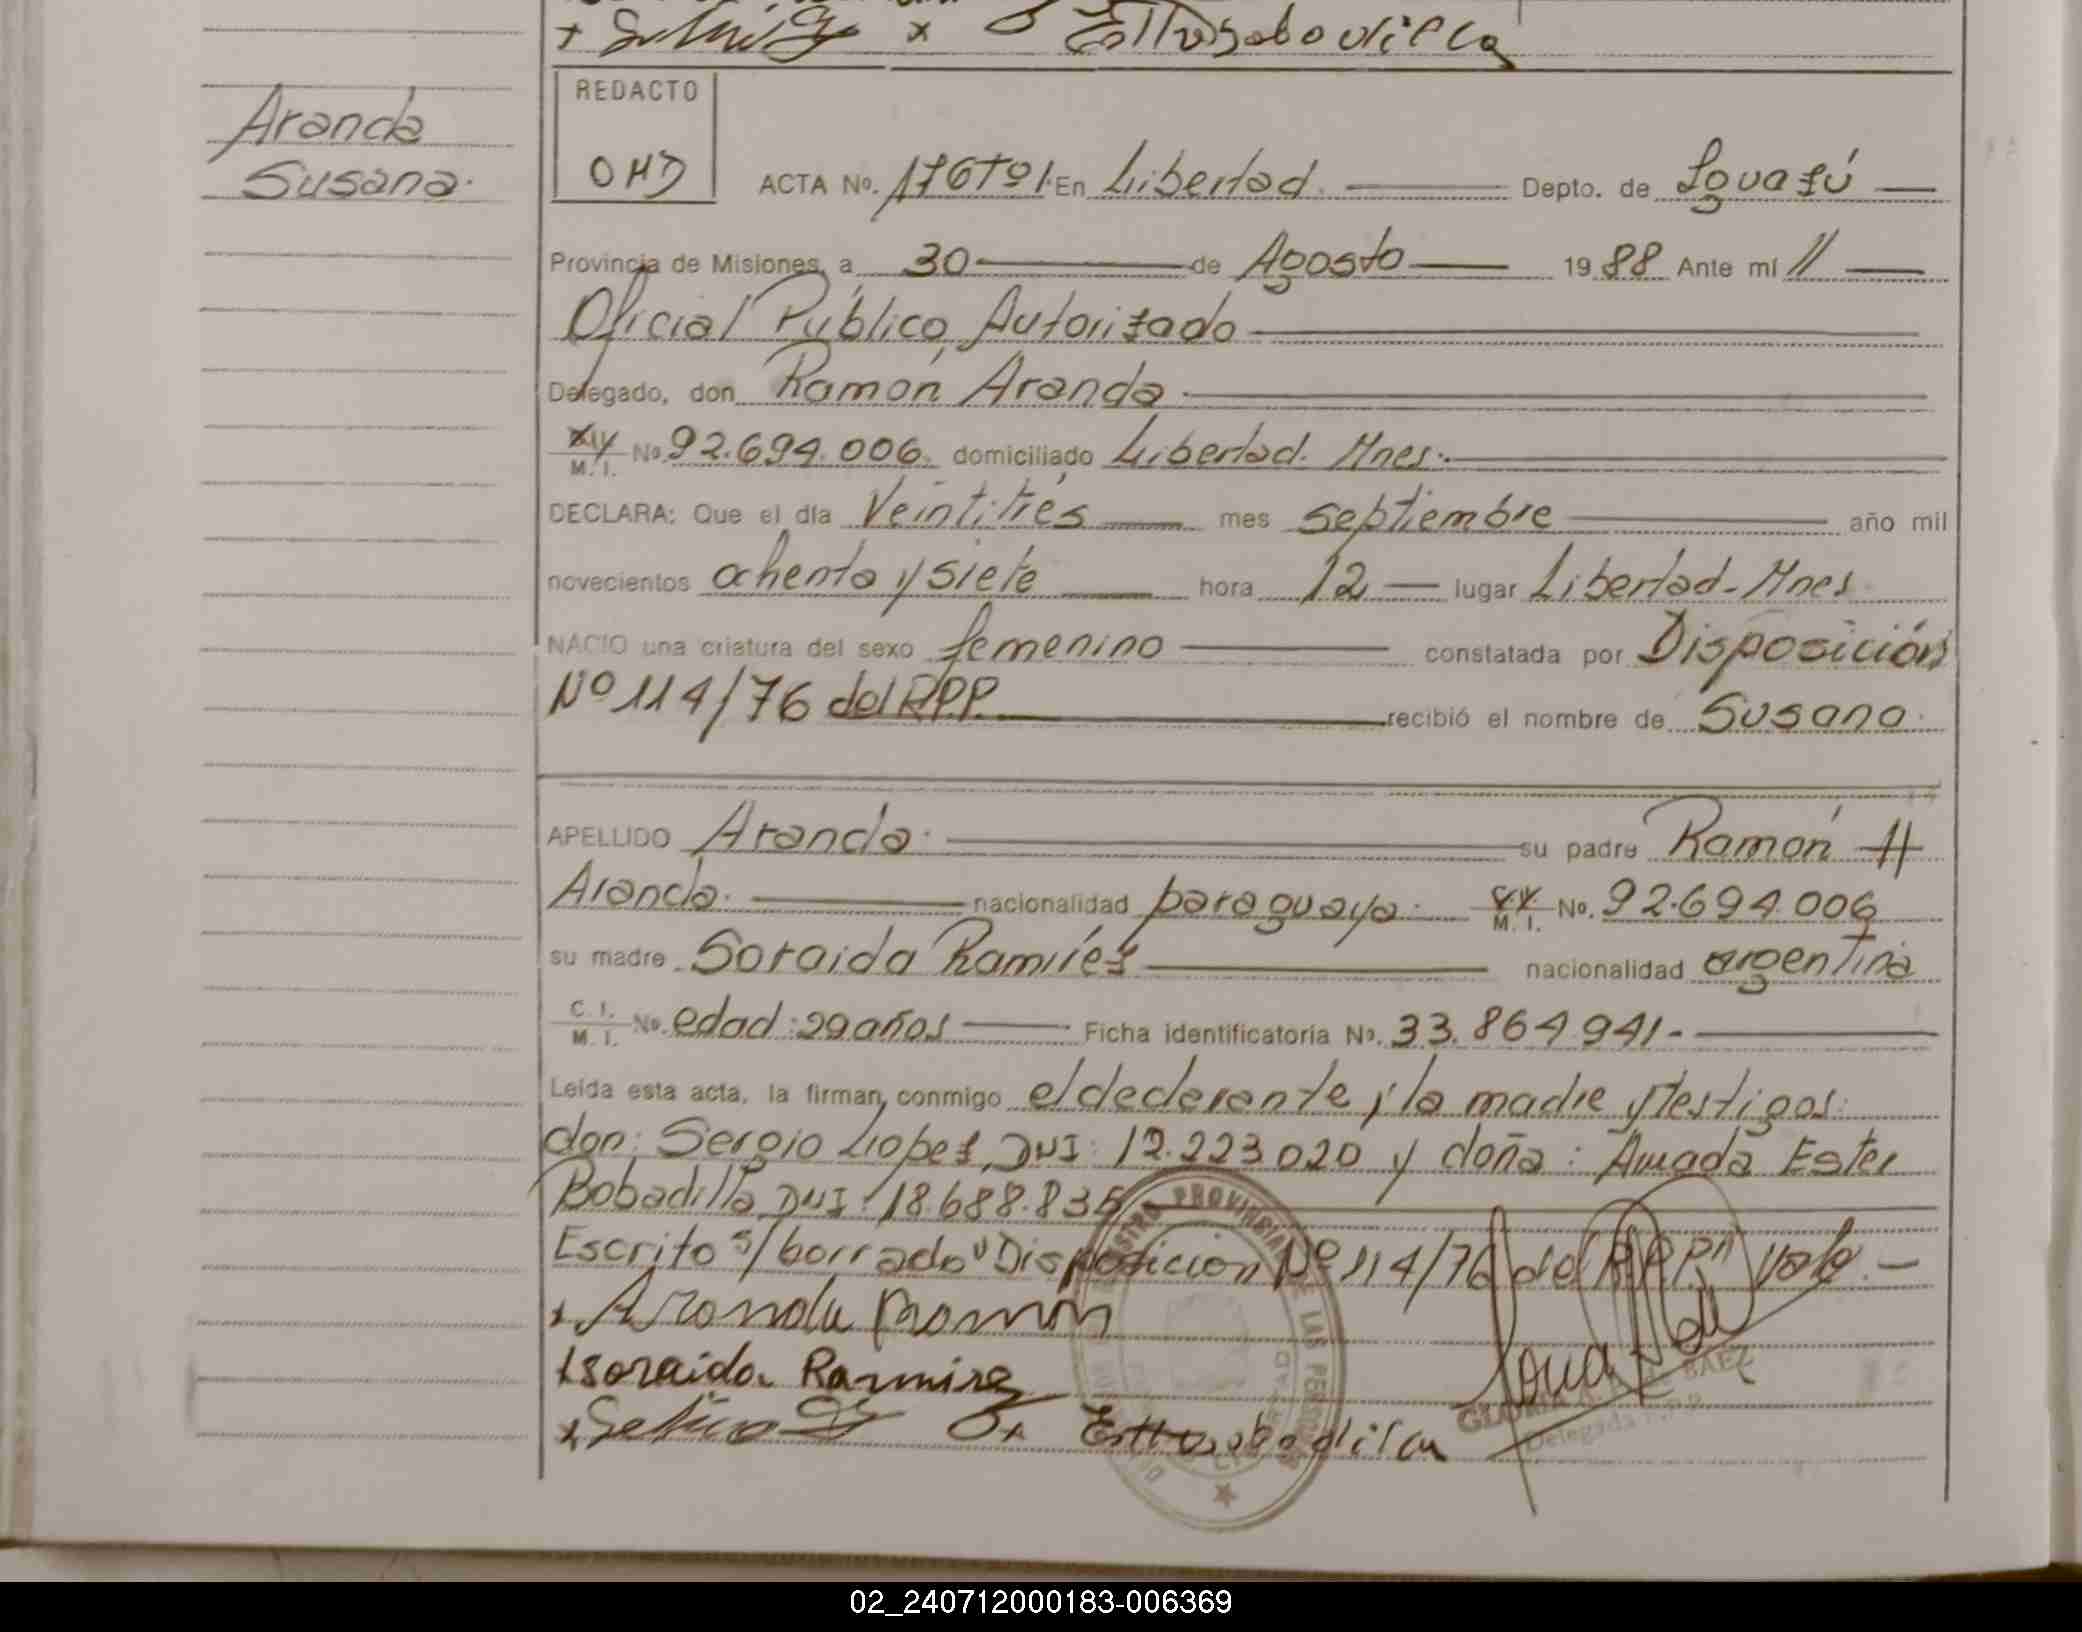 Aranda
Susana.
REDACTO
OHD
ACTA No. 176Tº1. En Libertad. Depto. de Iguazú
Provincia de Misiones, a 30 de Agosto 1988 Ante mí //
Oficial Público Autorizado
Delegado, don Ramón Aranda
M. I. No. 92.694.006. domiciliado Libertad. Mnes.
DECLARA: Que el día Veintitrés mes septiembre año mil
novecientos ochenta y siete hora 12 lugar Libertad-Mnes.
NACIO una criatura del sexo femenino constatada por Disposición
Nº 114/76 del R.P.P. recibió el nombre de Susana.
APELLIDO Aranda. su padre Ramón //
Aranda. nacionalidad paraguaya. M. I. No. 92.694.006
su madre Soraida Ramírez nacionalidad argentina
C. I. M. I. No. edad: 29 años Ficha identificatoria No. 33.864.941-
Leída esta acta, la firman conmigo el declarante, la madre y testigos:
don: Sergio Lopez, DNI: 12.223.020 y doña: Amada Ester
Bobadilla DNI: 18.688.835
Escrito s/ borrado "Disposición Nº 114/76 del R.P.P." vale.-
x Aranda Ramon
x soraida Ramirez
REGISTRO PROVINCIAL DE LAS PERSONAS
GLORIA BAEZ
Delegada
02_240712000183-006369